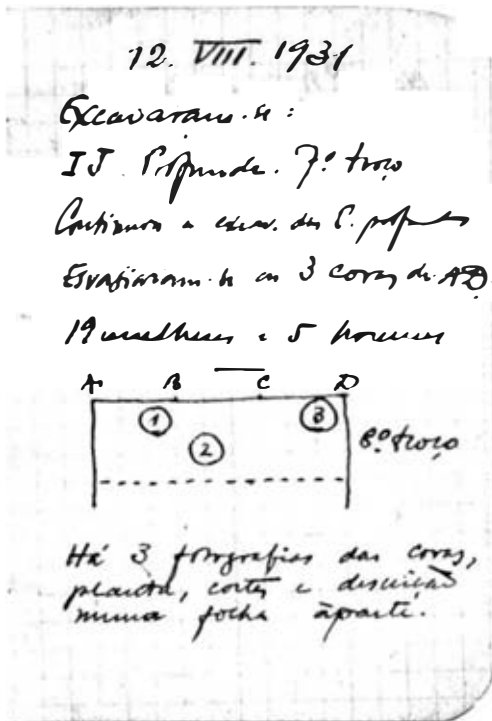 12. VIII. 1931
Excavaram-se:
IJ Profunda. 7º troço
Continuou a excav. da C. profunda
Esvaziaram-se as 3 covas de AD.
19 mulheres e 5 homens
A B C D
1 3
2
8º troço
Há 3 fotografias das covas,
planta, cortes e descrição
numa folha àparte.